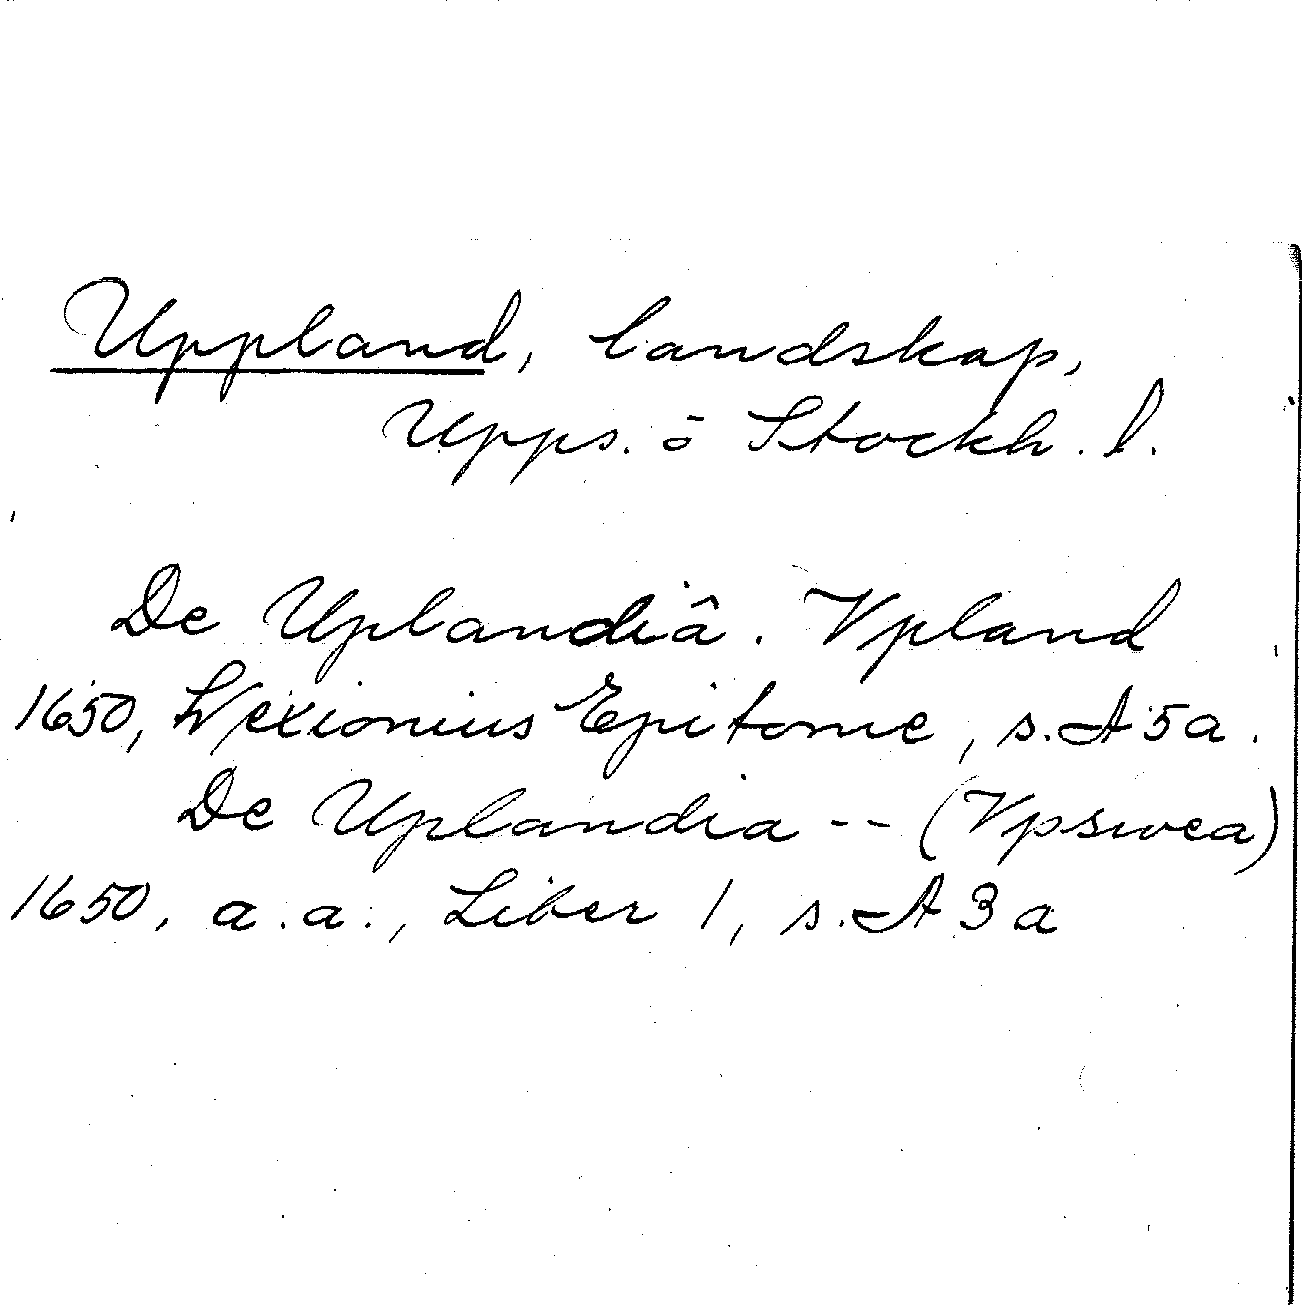 Uppland, landskap,
Upps. o Stockh. l.
De Uplandiâ. Vpland
1650, Wexionius Epitome, s. A 5 a.
De Uplandia -- (Vpswea)
1650, a.a., Liber 1, s. A 3 a